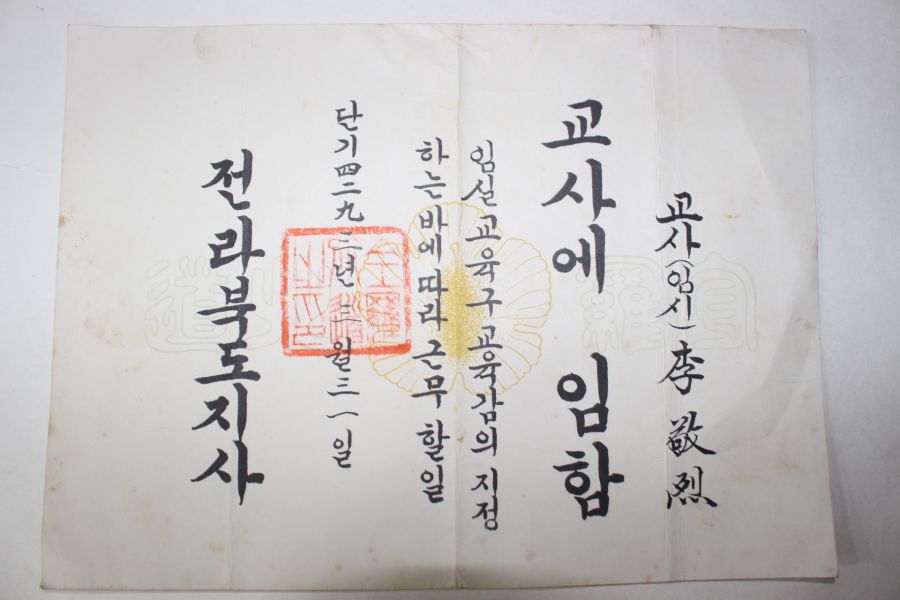 교사(임시) 李敬烈
교사에 임함
임실교육구교육감의 지정
하는바에따라 근무할일
단기四二九三년三월三一일
전라북도지사